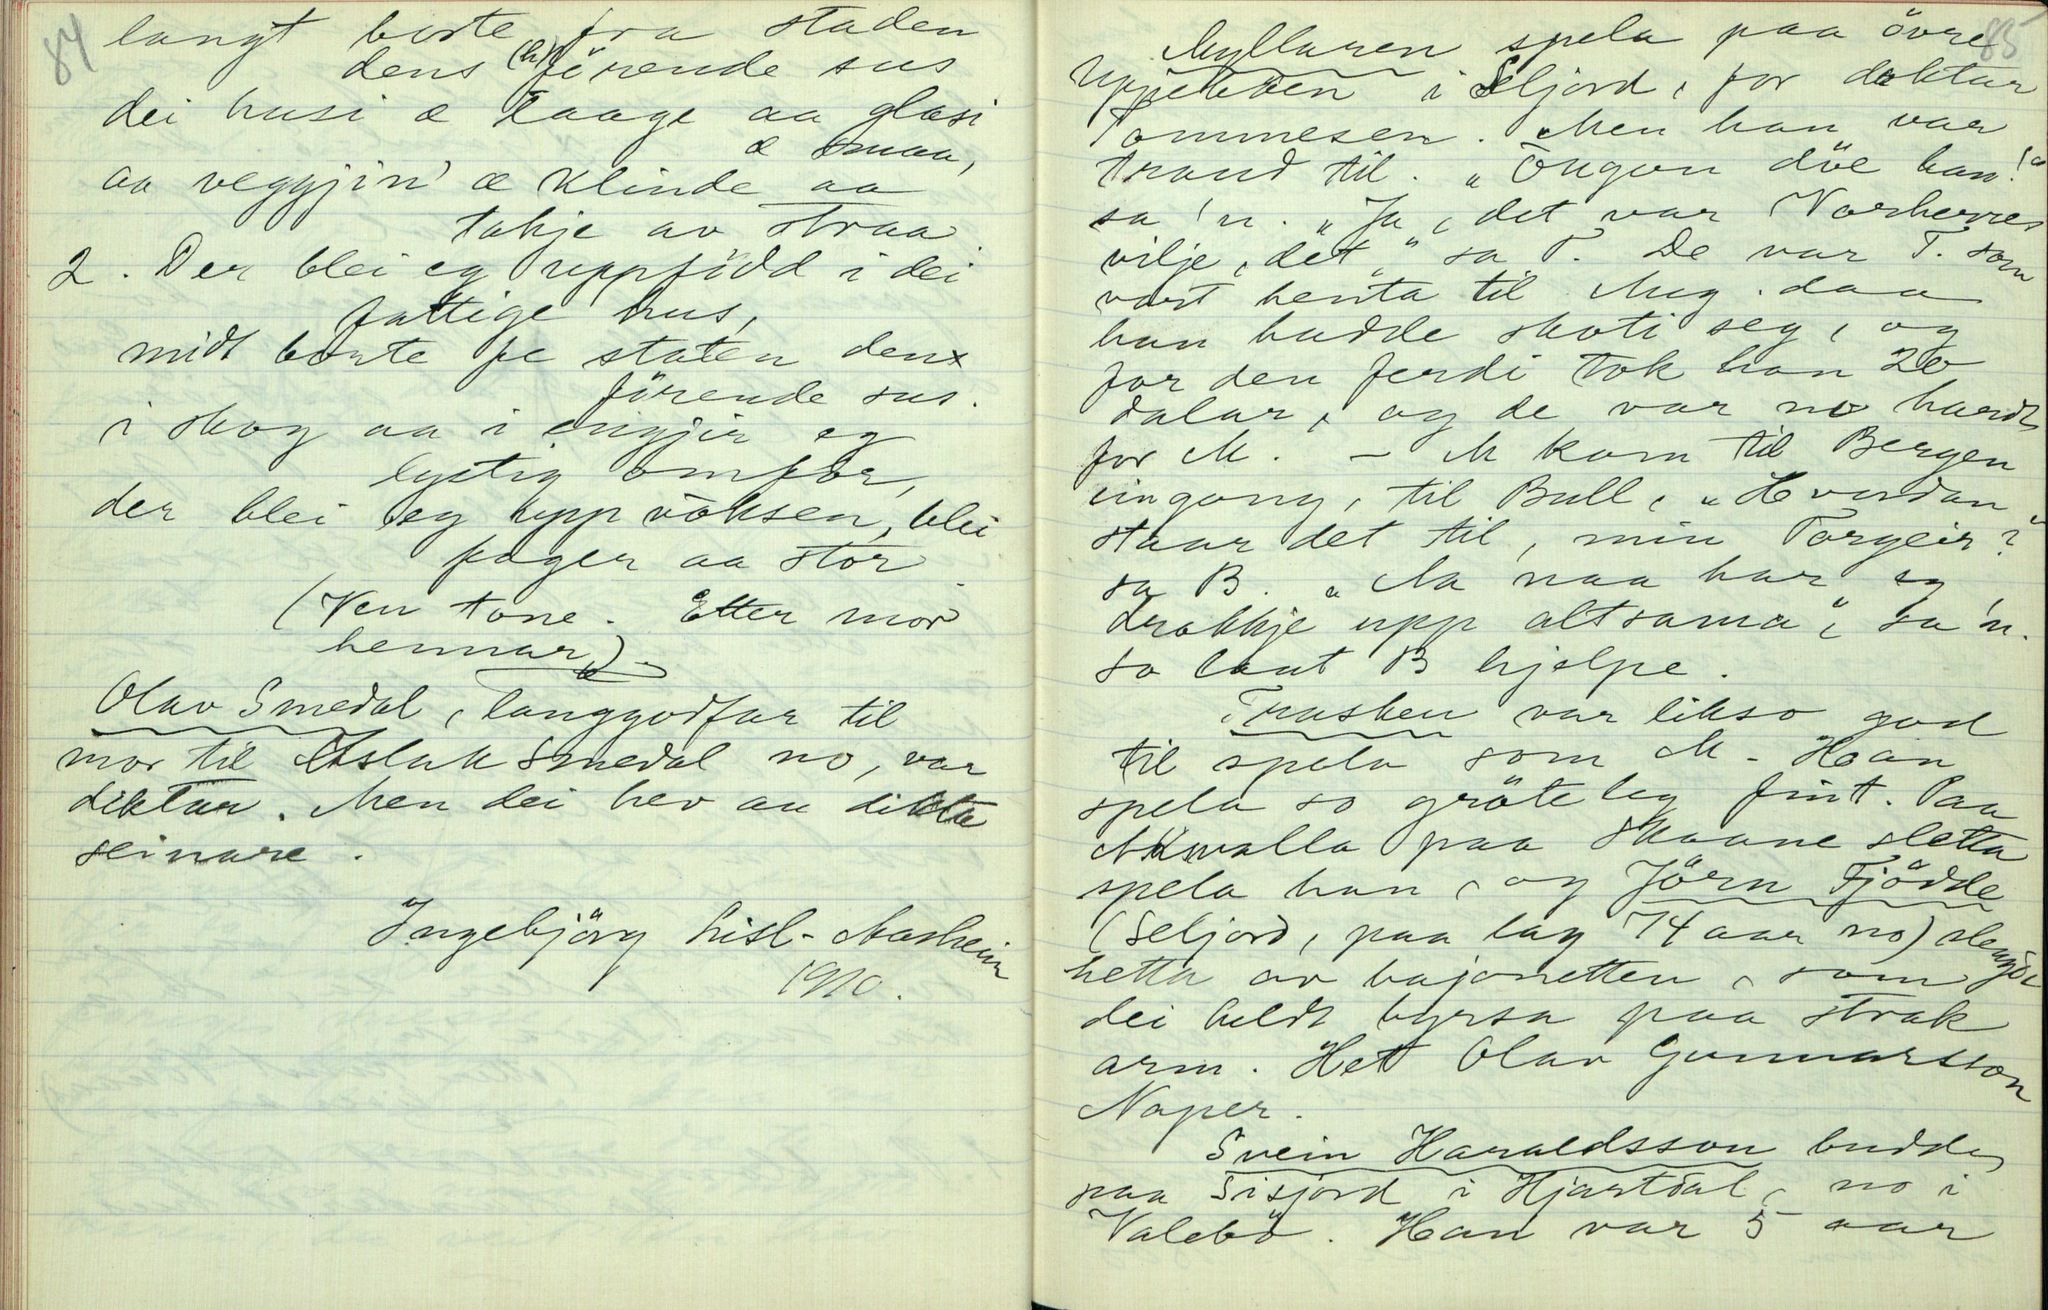 84
langt borte fra staden
dens (h)förende sus
dei husi æ laage aa glasi
æ smaa,
aa veggjin' æ klinde aa
takje av straa
2. Der blei eg uppfödd i dei
fattige hus,
midt borte fe staten den
förende sus.
i skog aa i engjir eg
lystig omfor,
der blei eg uppvöksen, blei
fager aa stor.
(Ven tone. Etter mor
hennar).
Olav Smedal, langgodfar til
mor til Aslak Smedal no, var
diktar. Men dei hev au dikta
seinare.
Ingebjörg Lisl-Aasheim
1910.
85
Myllaren spela paa övre
i Seljord, for doktar
Tommesen. Men han var
traud til. "Ongon döe han!"
sa 'n. "Ja, det var Vorherres
vilje, det," sa T. De var T. som
vart henta til Myg. daa
han hadde skoti seg, og
for den ferdi tok han 20
dalar, og de var no hardt
for M. - M kom til Bergen
eingong, til Bull, "Hvordan
staar det til, min Torgeir?"
sa B. "Aa naa har eg
drokkje upp altsama", sa 'n.
so laut B hjelpe.
Trusken var likso god
til spela som M. Han
spela so gröteleg fint. Paa
paa Skaane sletta
spela han, og Jörn Fjödde
(Seljord, paa lag 74 aar no)
hetta av bajonetten, som
dei heldt byrsa paa strak
arm. Het Olav Gunnarsson
Naper.
Svein Haraldsson budde
paa Sisjord i Hjartdal, no i
Valebö. Han var 5 aar